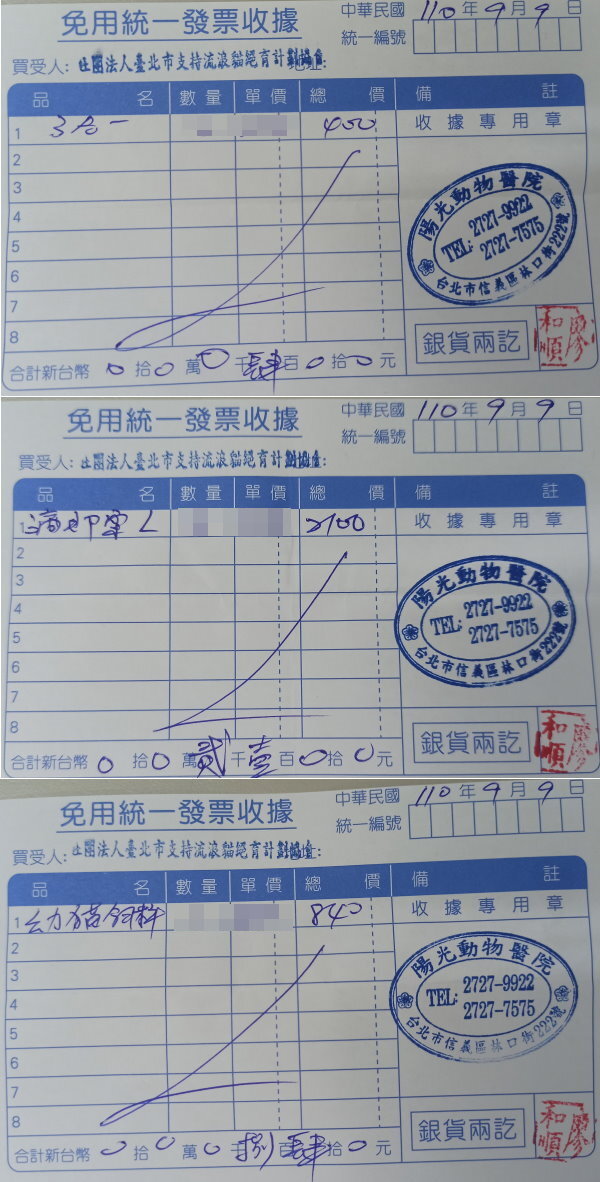 免用統一發票收據
中華民國 110年9月9日
統一編號
買受人: 社團法人臺北市支持流浪貓絕育計劃協會
品名 數量 單價 總價 備註
1 3合一 400 收據專用章
2
3
4
5
6
7
8
陽光動物醫院
TEL: 2727-9922
2727-7575
台北市信義區林口街222號
銀貨兩訖
和順
合計新台幣 0拾0萬0千肆百0拾0元
免用統一發票收據
中華民國 110年9月9日
統一編號
買受人: 社團法人臺北市支持流浪貓絕育計劃協會
品名 數量 單價 總價 備註
1 2100 收據專用章
2
3
4
5
6
7
8
陽光動物醫院
TEL: 2727-9922
2727-7575
台北市信義區林口街222號
銀貨兩訖
和順
合計新台幣 0拾0萬貳千壹百0拾0元
免用統一發票收據
中華民國 110年9月9日
統一編號
買受人: 社團法人臺北市支持流浪貓絕育計劃協會
品名 數量 單價 總價 備註
1 幼貓飼料 840 收據專用章
2
3
4
5
6
7
8
陽光動物醫院
TEL: 2727-9922
2727-7575
台北市信義區林口街222號
銀貨兩訖
和順
合計新台幣 0拾0萬0千捌百肆拾0元